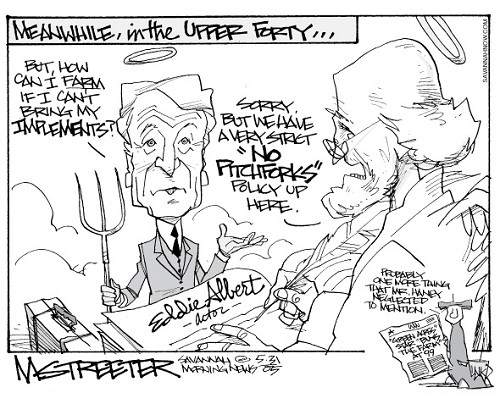 MEANWHILE, in the UPPER FORTY...
BUT, HOW
CAN I FARM
IF I CAN'T
BRING MY
IMPLEMENTS?
SORRY,
BUT WE HAVE
A VERY STRICT
"NO
PITCHFORKS"
POLICY UP
HERE.
Eddie Albert
-actor-
PROBABLY
ONE MORE THING
THAT MR. HANEY
NEGLECTED
TO MENTION.
"GREEN ACRES"
STAR BUYS
THE FARM
AT 99
M.STREETER
SAVANNAH
MORNING NEWS
5.31
05
SAVANNAHNOW.COM